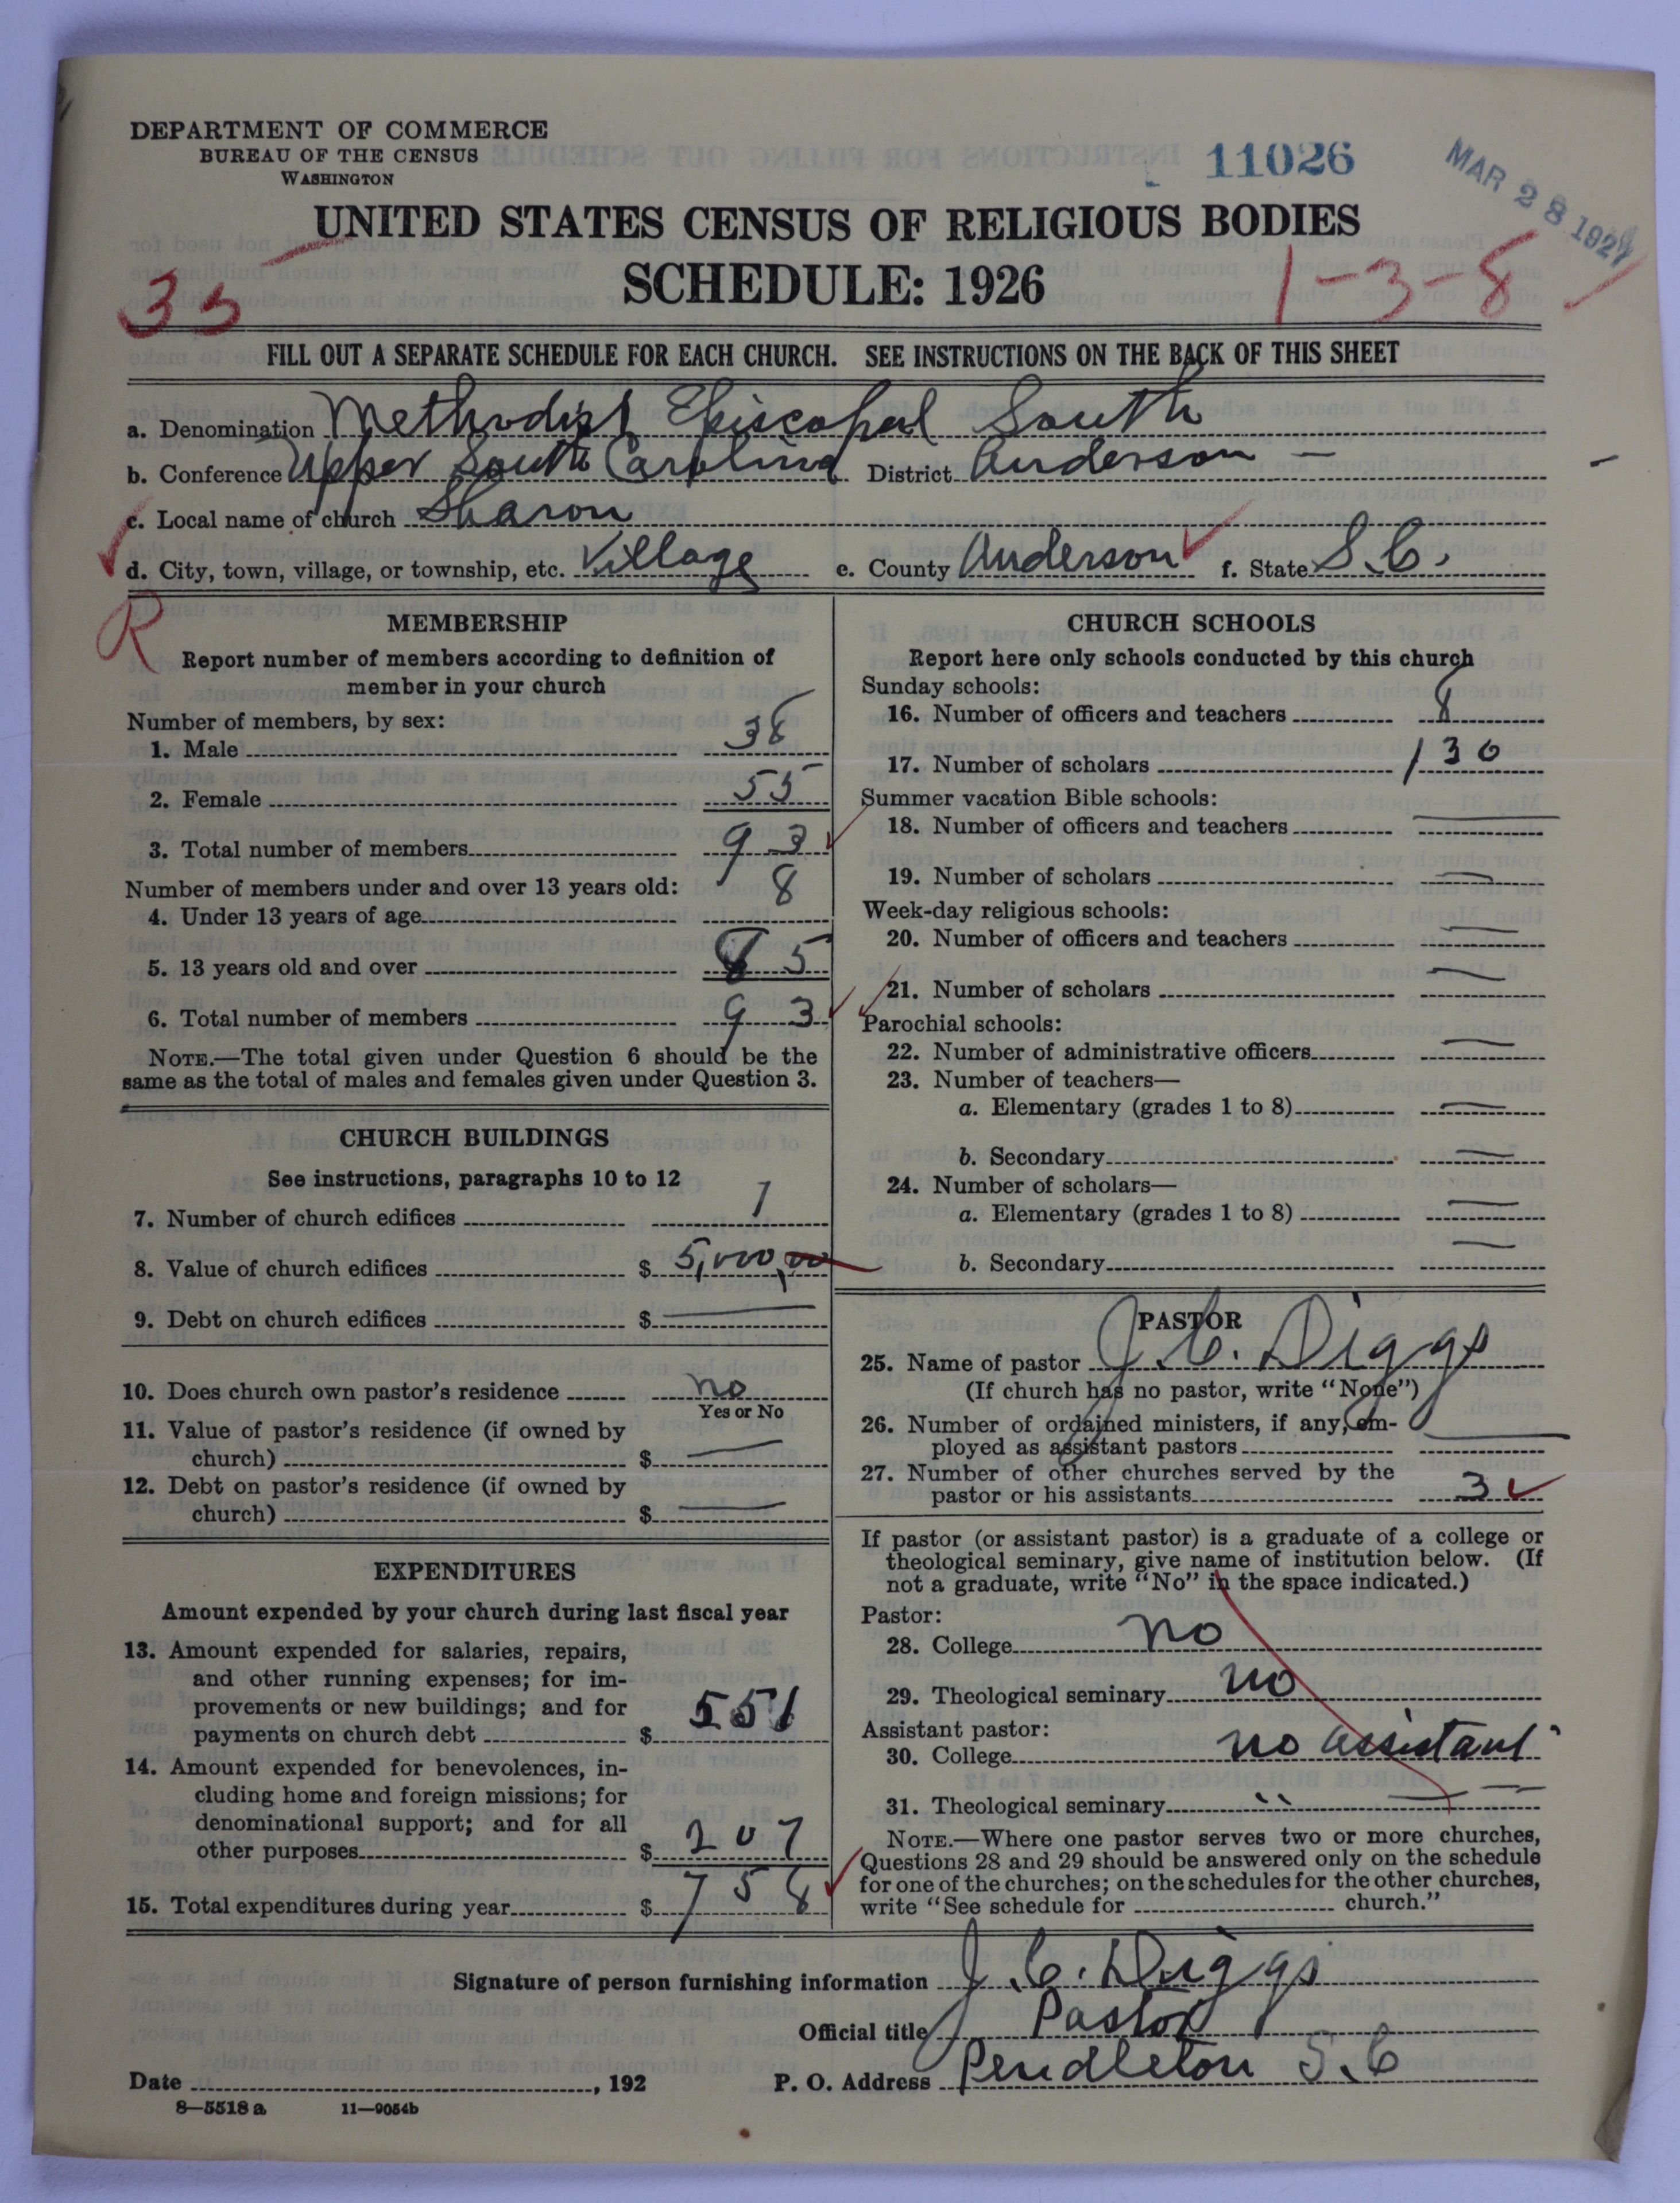 DEPARTMENT OF COMMERCE
BUREAU OF THE CENSUS
WASHINGTON
11026
MAR 28 1927
UNITED STATES CENSUS OF RELIGIOUS BODIES
SCHEDULE: 1926
35
1-3-8
FILL OUT A SEPARATE SCHEDULE FOR EACH CHURCH. SEE INSTRUCTIONS ON THE BACK OF THIS SHEET
a. Denomination Methodist Episcopal South
b. Conference Upper South Carolina District Anderson
c. Local name of church Sharon
d. City, town, village, or township, etc. Village e. County Anderson f. State S.C.
R
MEMBERSHIP
Report number of members according to definition of
member in your church
Number of members, by sex:
1. Male 38
2. Female 55
3. Total number of members 93
Number of members under and over 13 years old:
4. Under 13 years of age 8
5. 13 years old and over 85
6. Total number of members 93
NOTE.—The total given under Question 6 should be the
same as the total of males and females given under Question 3.
CHURCH BUILDINGS
See instructions, paragraphs 10 to 12
7. Number of church edifices 1
8. Value of church edifices $ 5,000,00
9. Debt on church edifices $ —
10. Does church own pastor's residence no
Yes or No
11. Value of pastor's residence (if owned by
church) $ —
12. Debt on pastor's residence (if owned by
church) $ —
EXPENDITURES
Amount expended by your church during last fiscal year
13. Amount expended for salaries, repairs,
and other running expenses; for im-
provements or new buildings; and for
payments on church debt $ 551
14. Amount expended for benevolences, in-
cluding home and foreign missions; for
denominational support; and for all
other purposes $ 207
15. Total expenditures during year $ 758
CHURCH SCHOOLS
Report here only schools conducted by this church
Sunday schools:
16. Number of officers and teachers 8
17. Number of scholars 130
Summer vacation Bible schools:
18. Number of officers and teachers —
19. Number of scholars —
Week-day religious schools:
20. Number of officers and teachers —
21. Number of scholars —
Parochial schools:
22. Number of administrative officers —
23. Number of teachers—
a. Elementary (grades 1 to 8) —
b. Secondary —
24. Number of scholars—
a. Elementary (grades 1 to 8) —
b. Secondary —
PASTOR
25. Name of pastor J. C. Diggs
(If church has no pastor, write "None")
26. Number of ordained ministers, if any, em-
ployed as assistant pastors —
27. Number of other churches served by the
pastor or his assistants 3
If pastor (or assistant pastor) is a graduate of a college or
theological seminary, give name of institution below. (If
not a graduate, write "No" in the space indicated.)
Pastor:
28. College no
29. Theological seminary no
Assistant pastor:
30. College no assistant
31. Theological seminary " — —
NOTE.—Where one pastor serves two or more churches,
Questions 28 and 29 should be answered only on the schedule
for one of the churches; on the schedules for the other churches,
write "See schedule for church."
Signature of person furnishing information J. C. Diggs
Official title Pastor
Date , 192 P. O. Address Pendleton S.C
8—5518a 11—9054b